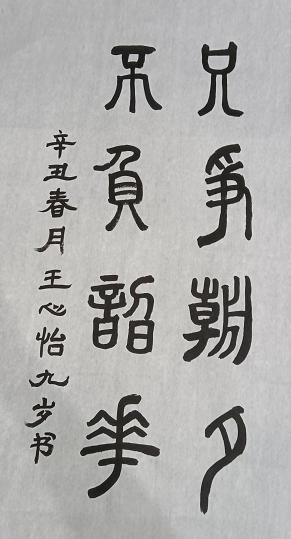 只争朝夕
不负韶华
辛丑春月王心怡九岁书